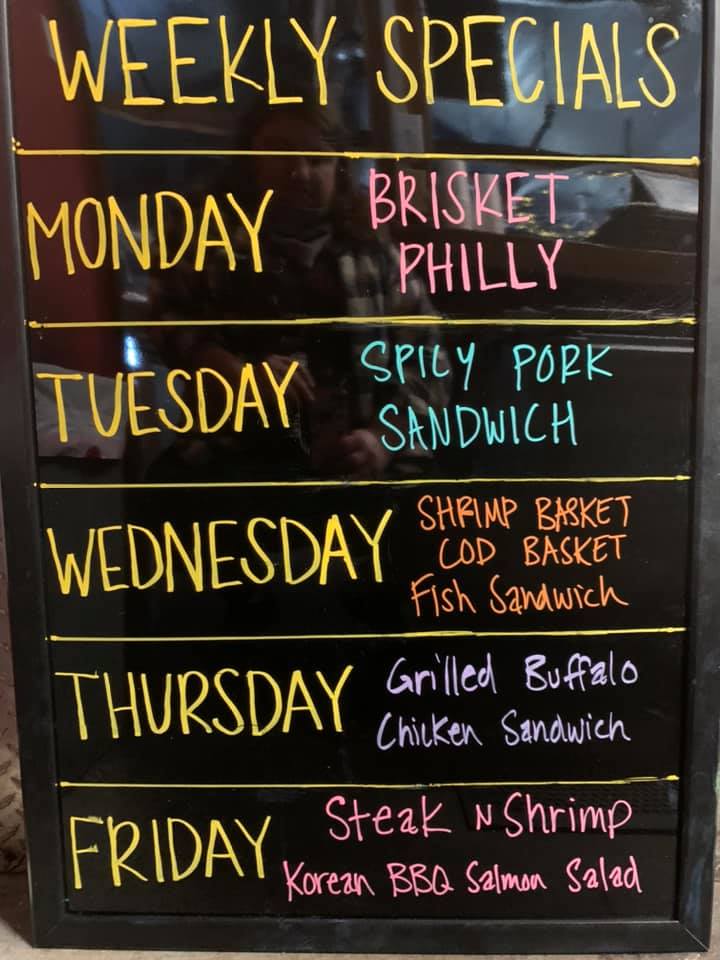 WEEKLY SPECIALS
MONDAY BRISKET
PHILLY
TUESDAY SPICY PORK
SANDWICH
WEDNESDAY SHRIMP BASKET
COD BASKET
Fish Sandwich
THURSDAY Grilled Buffalo
Chicken Sandwich
FRIDAY Steak N Shrimp
Korean BBQ Salmon Salad